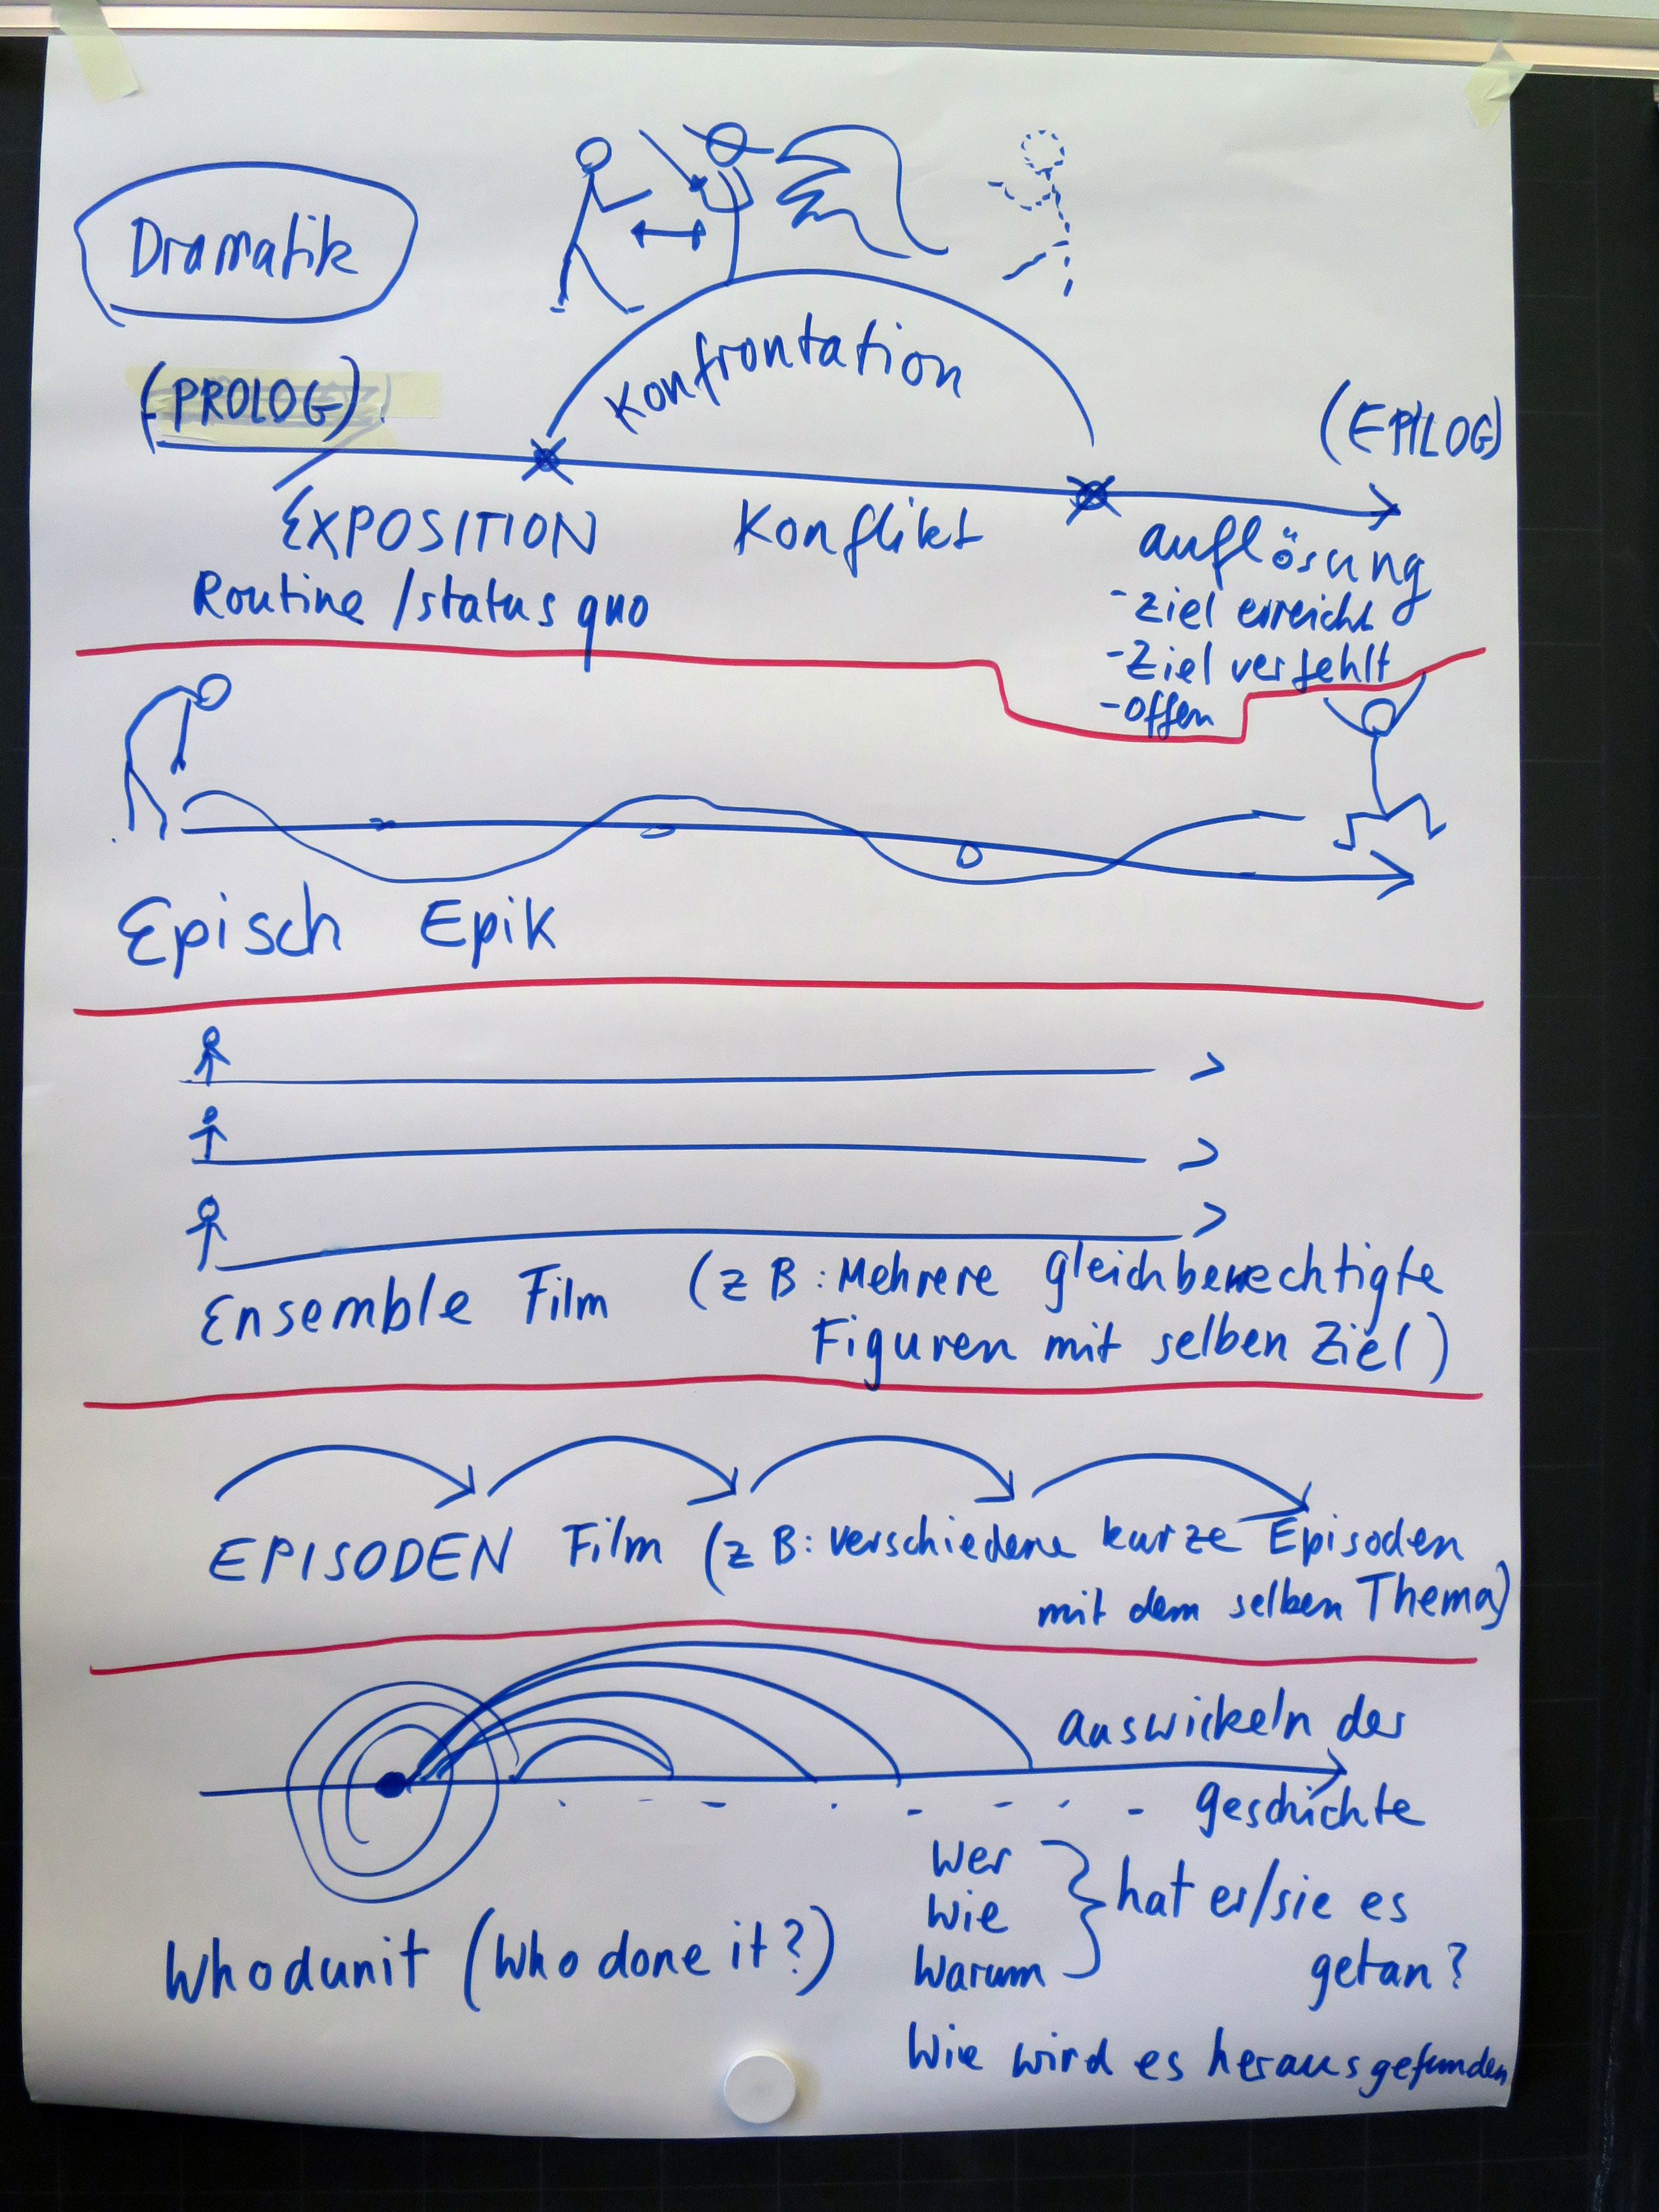 Dramatik
Konfrontation
(PROLOG)
(EPILOG)
EXPOSITION Konflikt auflösung
Routine /status quo
-Ziel erreicht
-Ziel verfehlt
-offen
Episch Epik
Ensemble Film (z B: Mehrere gleichberechtigte
Figuren mit selben Ziel)
EPISODEN Film (z B: verschiedene kurze Episoden
mit dem selben Thema)
auswickeln der
geschichte
wer
wie
warum
hat er/sie es
getan?
Whodunit (Who done it?)
Wie wird es herausgefunden